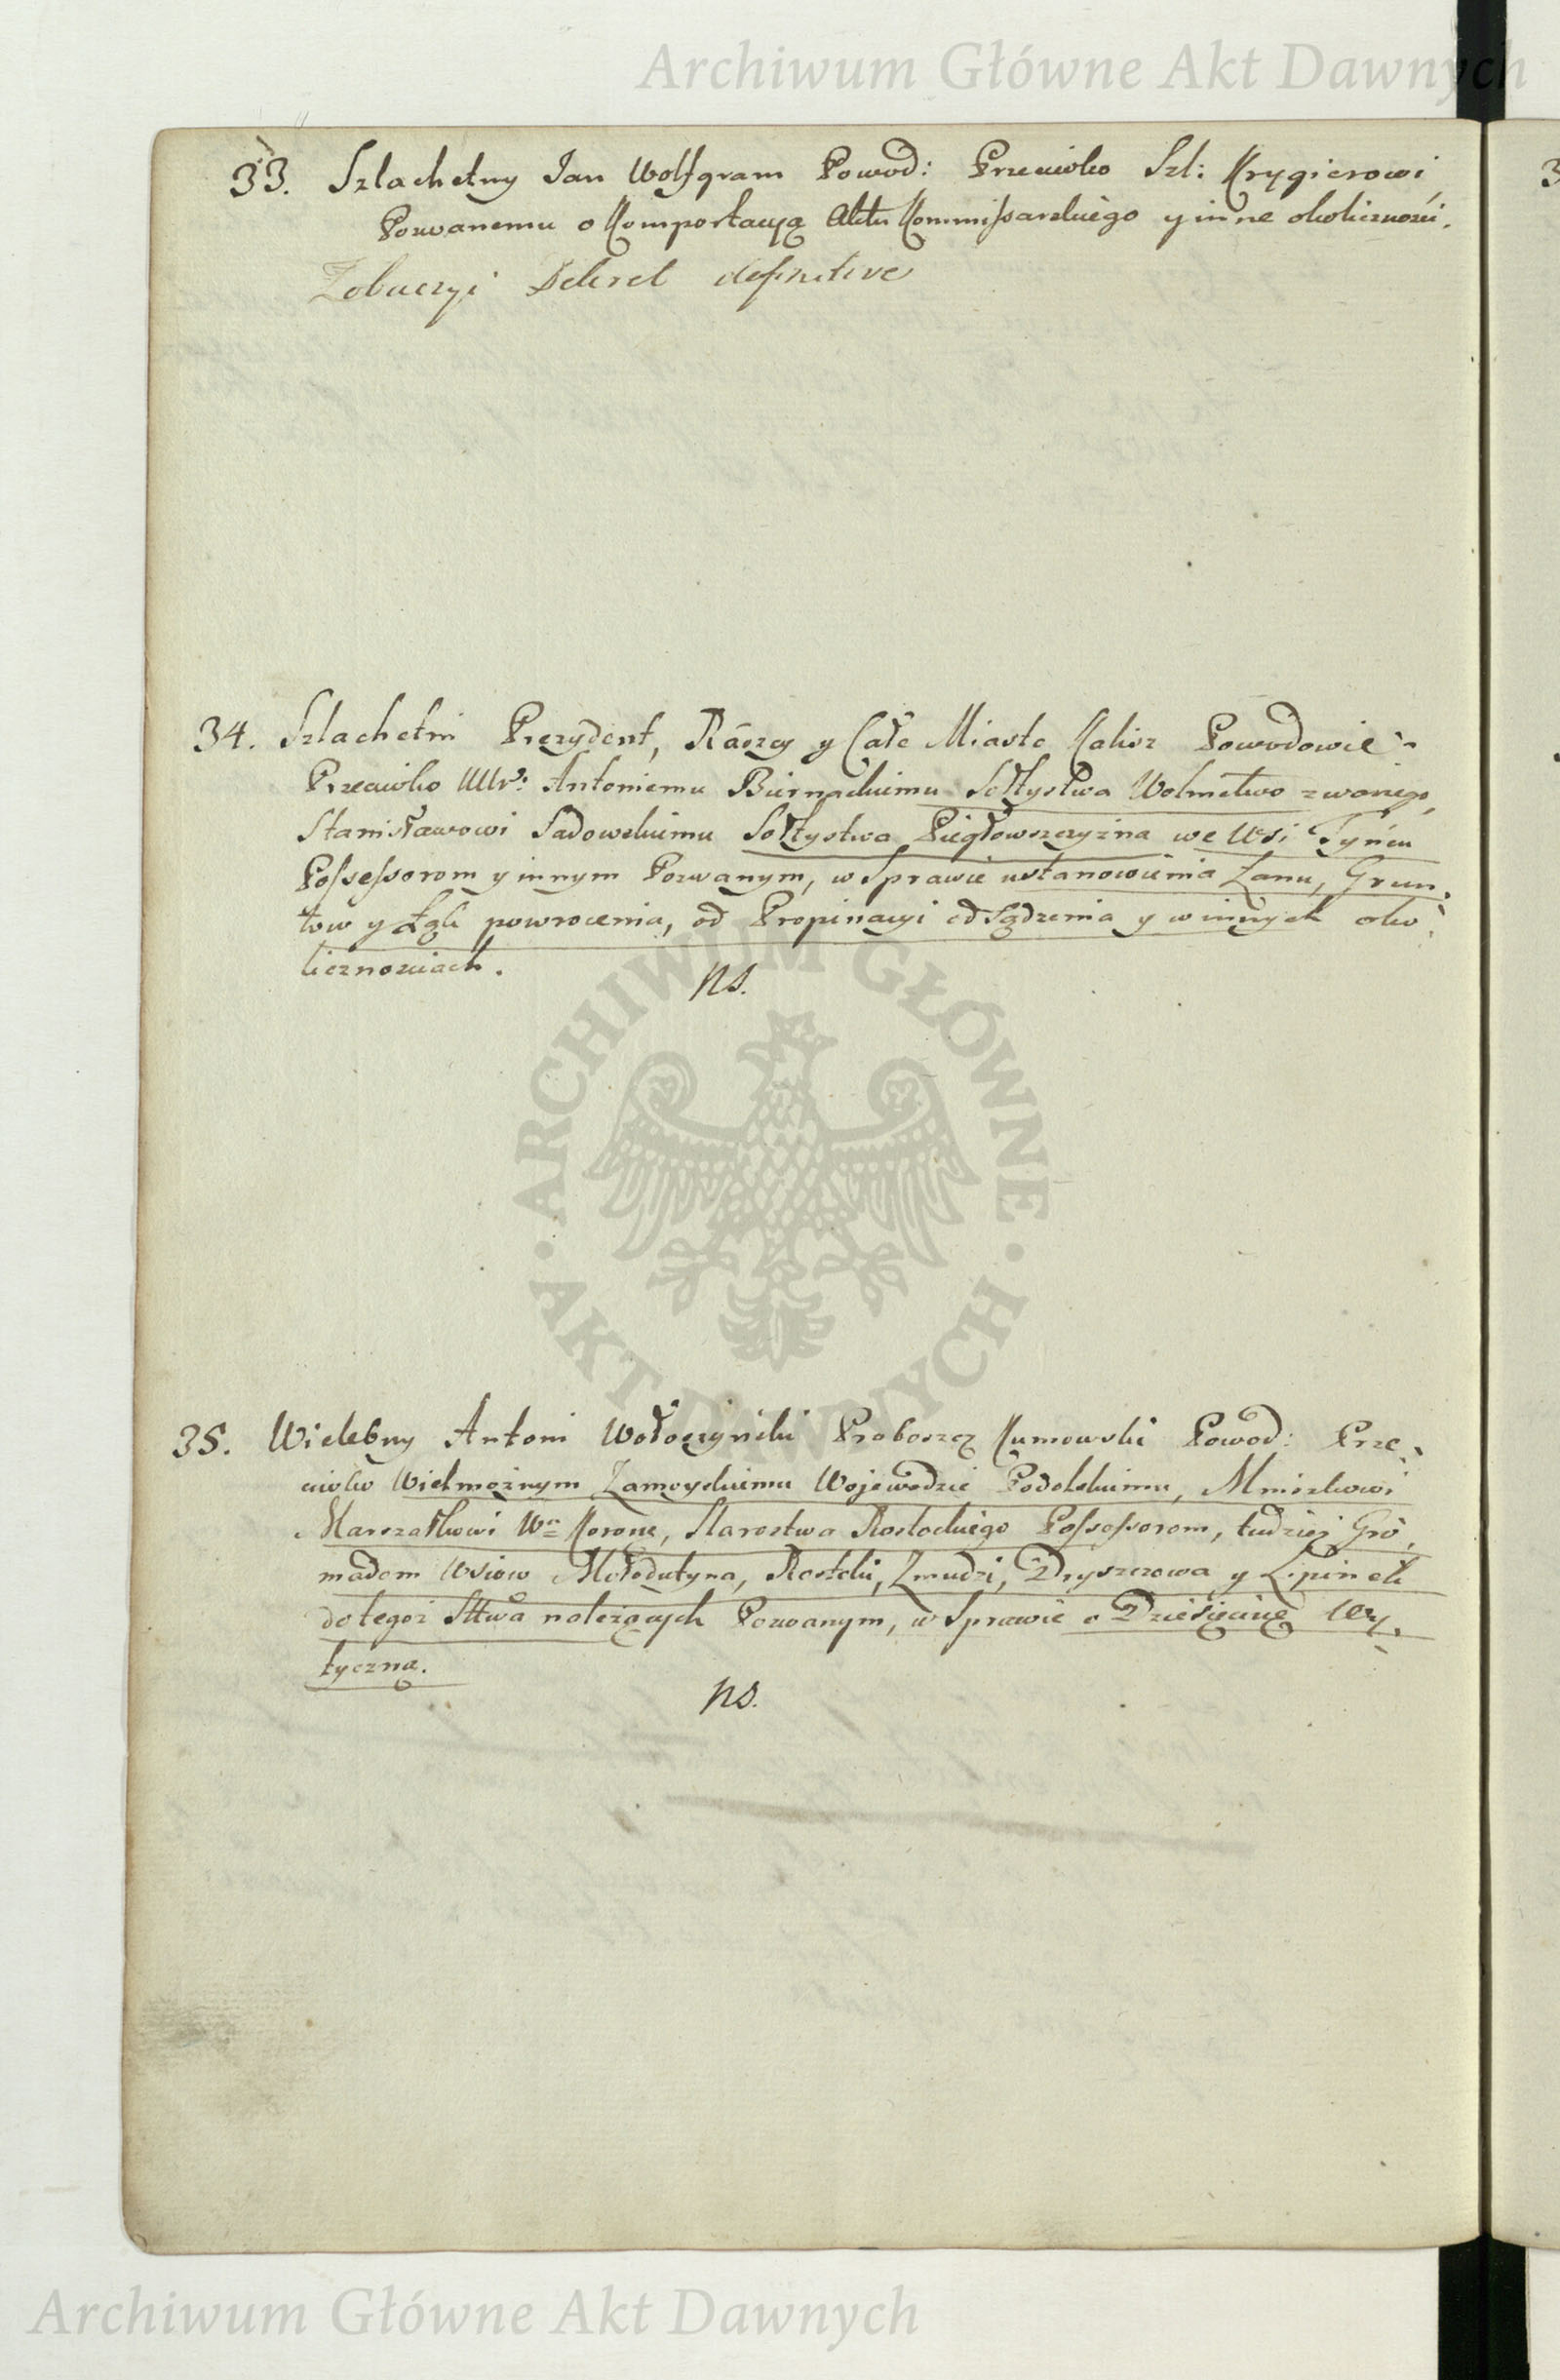 Archiwum Główne Akt Dawnych
33. Szlachetny Jan Wolfgram Powod: Przeciwko Szl: Krygierowi
Pozwanemu o Komportacyą Aktu Kommissarskiego y inne okoliczności.
Zobaczyi Dekret definitive
34. Szlachetni Prezydent, Rayscy y Całe Miasto Kalisz Powodowie
Przeciwko Antoniemu Biernackiemu Sołtystwa Wolnictwo zwanego,
Stanisławowi Sadowskiemu Sołtystwa Piegłowszczyzna we Wsi Tyńcu
Possessorom y innym Pozwanym, w Sprawie ustanowienia Łanu, Grun-
tow y Łąk powrocenia, od Propinacyi odsądzenia y w innych oko-
licznosciach.
ns.
35. Wielebny Antoni Wołoczyński Proboszcz Kumowski Powod: Prze-
ciwko Wielmożnym Zamoyskiemu Wojewodzie Podolskiemu, Mniszkowi
Marszałkowi Wu Korone, Starostwa Rostockiego Possessorom, tudziej Gro-
madom Wsiow Mołodutyna, Rostoki, Zmudzi, Dryszczowa y Lipinek
do tegoż Sttwa należących Pozwanym, w Sprawie o Dziesięcinę Wy-
tyczną.
ns.
ARCHIWUM GŁÓWNE AKT DAWNYCH
Archiwum Główne Akt Dawnych